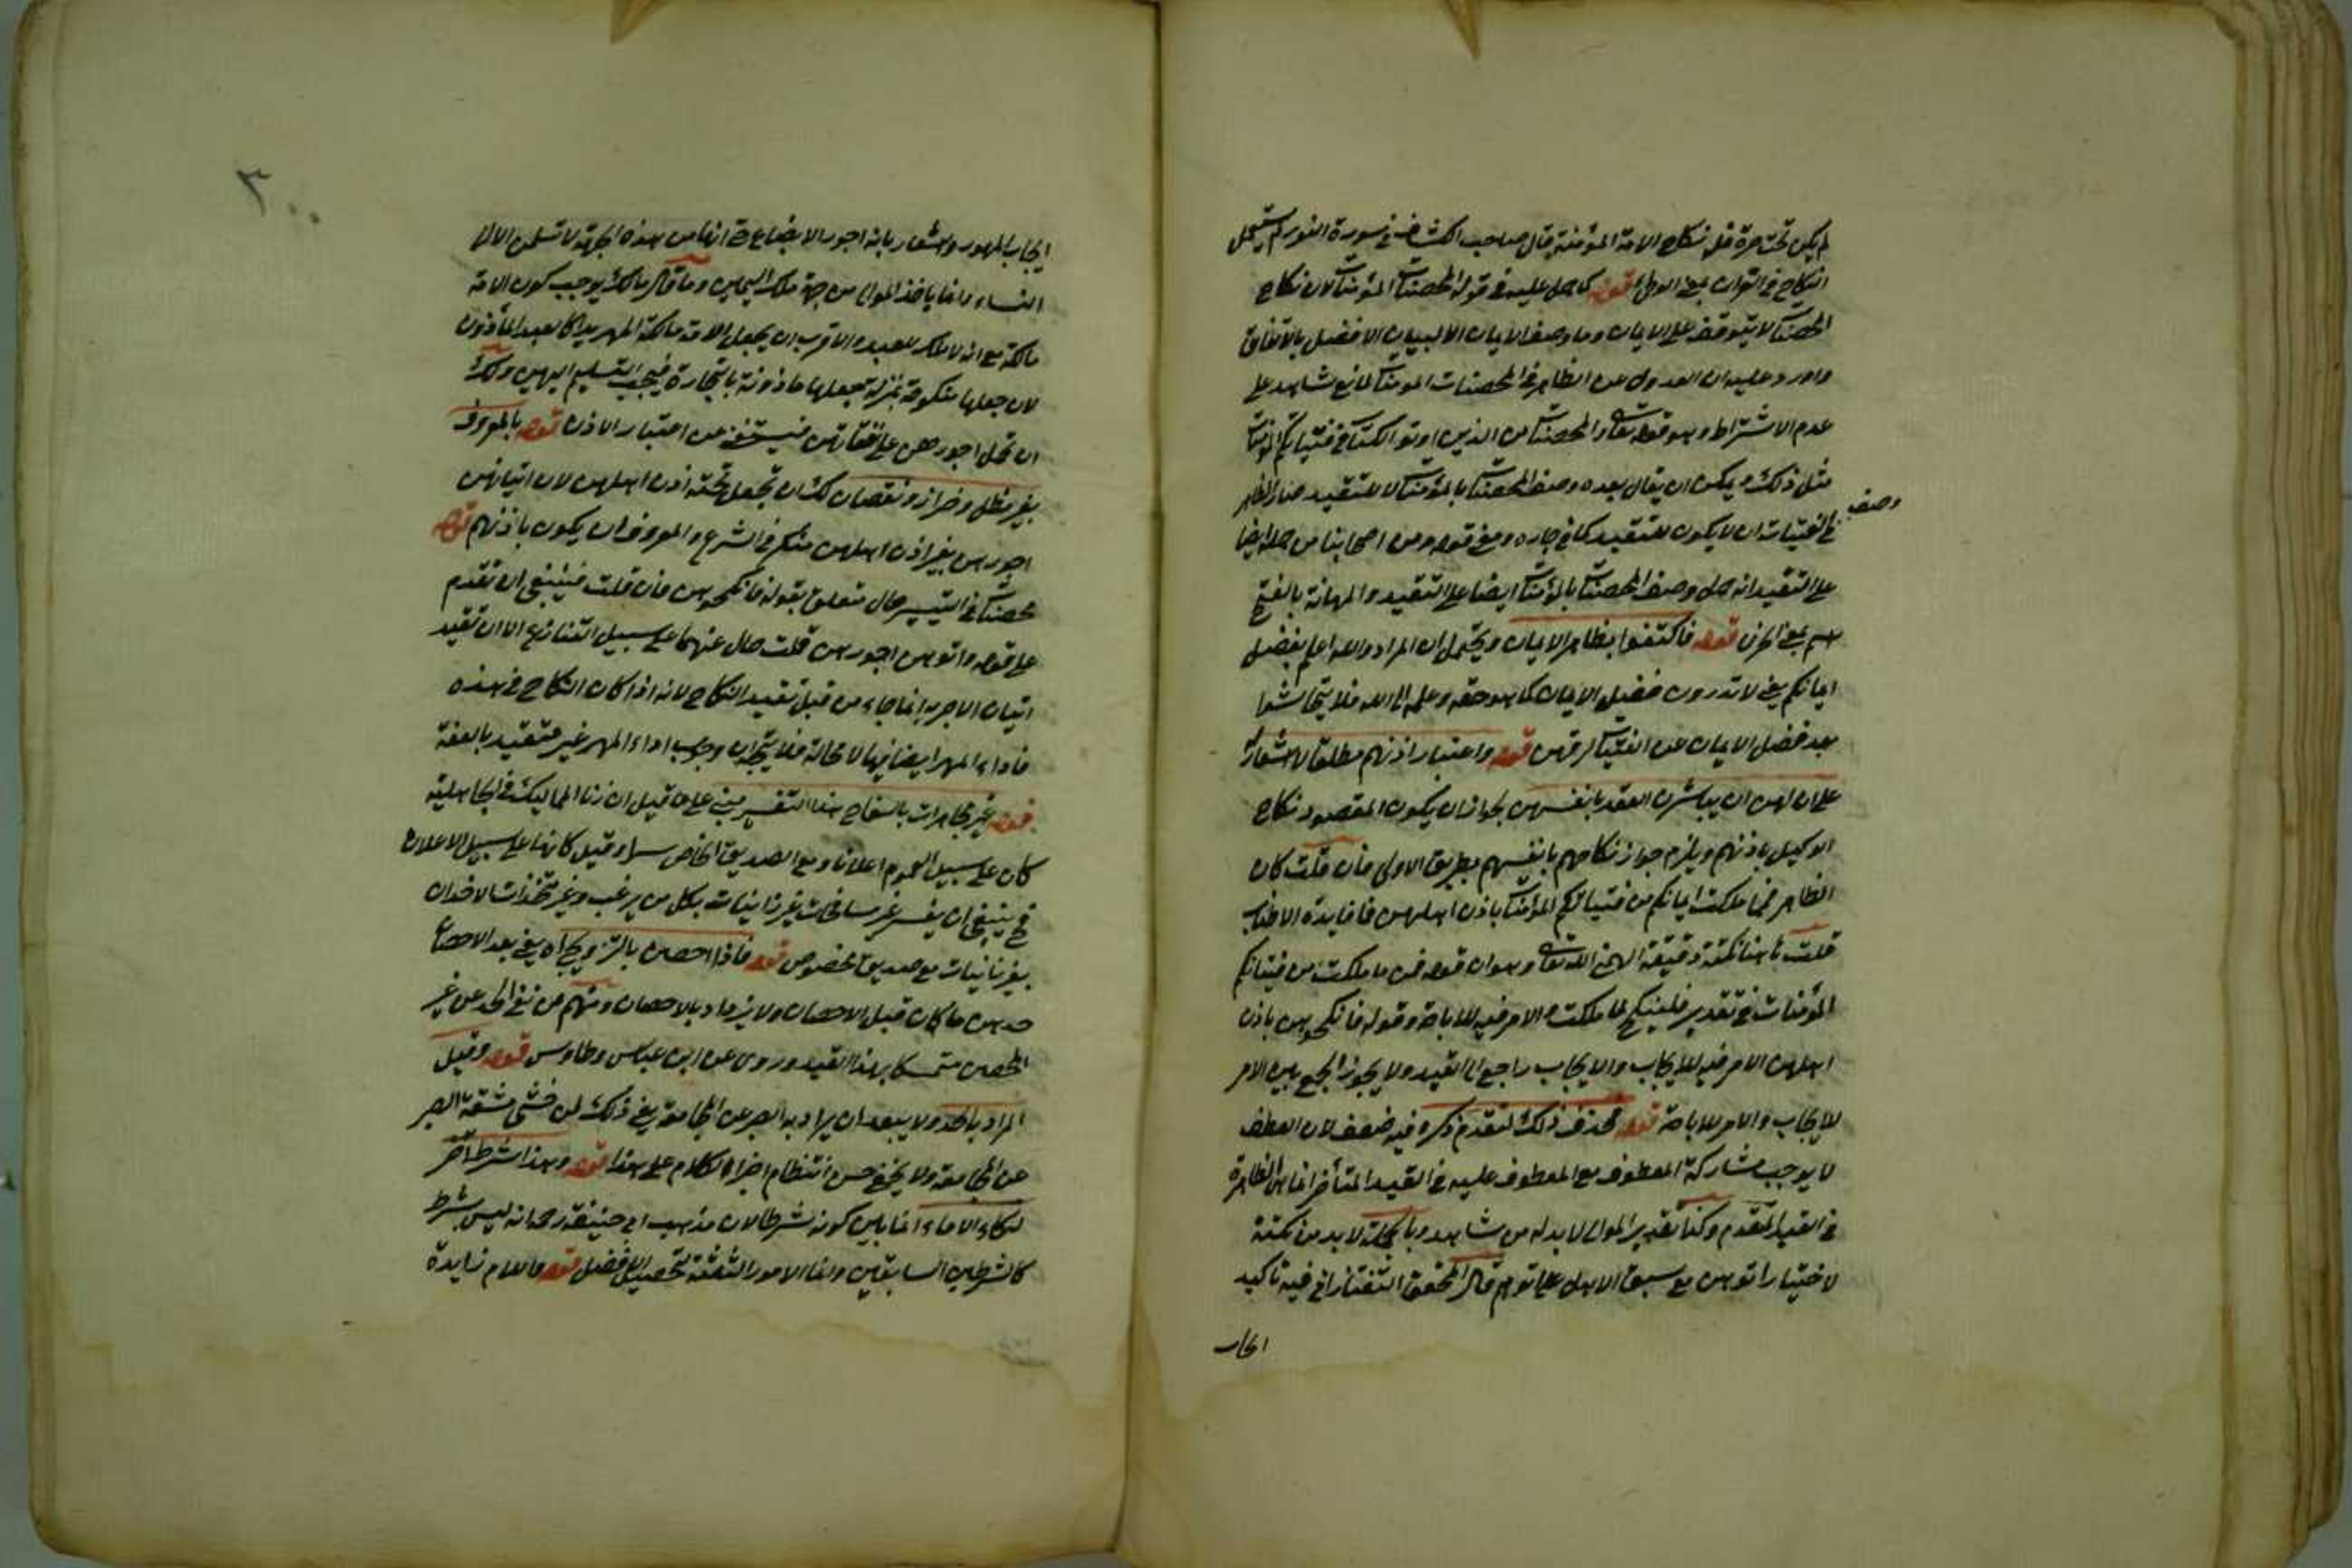 لم يكن تحته حرة قبل نكاح الامة المؤمنة قال صاحب الكشاف في سورة النور لم يستعمل
النكاح في القرآن بمعنى الوطئ قوله كما حمل عليه في قوله المحصنات المؤمنات لان نكاح
المحصنات لا يتوقف على الايمان وما وصف الايمان الا لبيان الافضل بالاتفاق
واورد عليه ان العدول عن الظاهر في المحصنات المومنات لمانع شاهد على
عدم الاشتراط وهو قوله تعالى والمحصنات من الذين اوتو الكتاب في فتياتكم المؤمنات
مثل ذلك ويمكن ان يقال بعده وصف المحصنات بالمؤمنات لا للتقييد صار الظاهر
وصف
في الفتيات ان لا يكون للتقييد كما في جاره ومعنى قوله ومن اصحابنا من حمله ايضا
على التقييد انه حمل وصف المحصنات بالمؤمنات ايضا على التقييد والمهانة بالفتح
اسم بمعنى الحزن قوله فاكتفوا بظاهر الايمان ويحتمل ان المراد والله اعلم بفضل
ايمانكم يعني لا تدرون فضيل الايمان كما هو حقه وعلمه الى الله فلا يتحاشوا
بعد فضل الايمان عن الفتيات لرقهن قوله واعتبار اذنهم مطلقا لا اشعار له
على ان لهن ان يباشرن العقد بانفسهن لجواز ان يكون المقصود نكاح
الوكيل باذنهم ويلزم جواز نكاحهم بانفسهم بطريق الاولى فان قلت كان
الظاهر فمما ملكت ايمانكم من فتياتكم المؤمنات باذن اهلهن فما فايدة الاطناب
قلت هاهنا نكتة دقيقة الهمني الله تعالى وهو ان قوله فمن ما ملكت من فتياتكم
المؤمنات في تقدير فلينكح مما ملكت والامر فيه للاباحة وقوله فانكحوهن باذن
اهلهن الامر فيه للايجاب والايجاب راجع الى القيد ولا يجوز الجمع بين الامر
للايجاب والامر للاباحة قوله فحذف ذلك لتقدم ذكره فيه ضعف لان العطف
لا يوجب مشاركة المعطوف مع المعطوف عليه في القيد المتأخر انما هي الظاهرة
في القيد المتقدم وكذا تقدير الموالي لا بد له من شاهد وبالجملة لا بد من نكتة
لاختيار اتوهن مع سبق الاهل على اتوهم قال المحقق التفتازاني فيه تأكيد
ايجاب
٣٠٠
ايجاب المهور واشعار بانه اجور الابضاع حتى انها من هذه الجهة لا تسلمن الا الى
النساء وانما ياخذ الموالي من جهة ملك اليمين وما قال مالك يوجب كون الامة
مالكة مع انه لا ملك للعبد والاقرب ان يجعل الامة مالكة المهر يدا كالعبد المأذون
لان جعلها منكوحة بمنزلة جعلها ماذونة بالتجارة فيجب التسليم اليهن ولك
ان تحمل اجورهن على نفقاتهن فيستغنى عن اعتبار الاذن قوله بالمعروف
بغير مطل وضرار ونقصان لك ان تجعل تحته اذن اهلهن لان اتيانهن
اجورهن بغير اذن اهلهن منكر في الشرع والمعروف ان يكون باذنهم قوله
محصنات في التيسير حال متعلق بقوله فانكحوهن فان قلت فينبغي ان تقدم
على قوله واتوهن اجورهن قلت حال عنهما على سبيل التنازع الا ان تقييد
اتيان الاجر به انما جاء من قبل تقييد النكاح لانه اذا كان النكاح في هذه
فاداء المهر ايضا فيها لا محالة فلا يتجه ان وجوب اداء المهر غير متقيد بالعفة
قوله غير مجاهرات بالسفاح هذا التفسير مبني على ما قيل ان زنا المماليك في الجاهلية
كان على سبيل العموم اعلانا ومع الصديق الخاص سرا وقيل كانها على سبيل الاعلان
فح ينبغي ان يفسر غير مسافحات بغير زانيات بكل من يرغب وغير متخذات الاخدان
بغير زانيات مع صديق مخصوص قوله فاذا احصن بالتزويج اراد يعني بعد الاحصان
حدهن ما كان قبل الاحصان ولا يزداد بالاحصان ومنهم من نفى الحد عن غير
المحصن متمسكا بهذا القيد وروى عن ابن عباس وطاوس قوله وقيل
المراد بالحد ولا يبعد ان يراد به الصبر عن المجامعة يعني ذلك لمن خشي مشقة الصبر
عن المجامعة ولا يخفى حسن انتظام اجزاء الكلام على هذا قوله وهذا شرط آخر
لنكاح الاماء انما بين كونه شرطا لان مذهب ابي حنيفة رحمه الله انه ليس بشرط
كالشرطين السابقين وانما الامور الثلثة لتحصيل الافضل قوله واللام زايدة